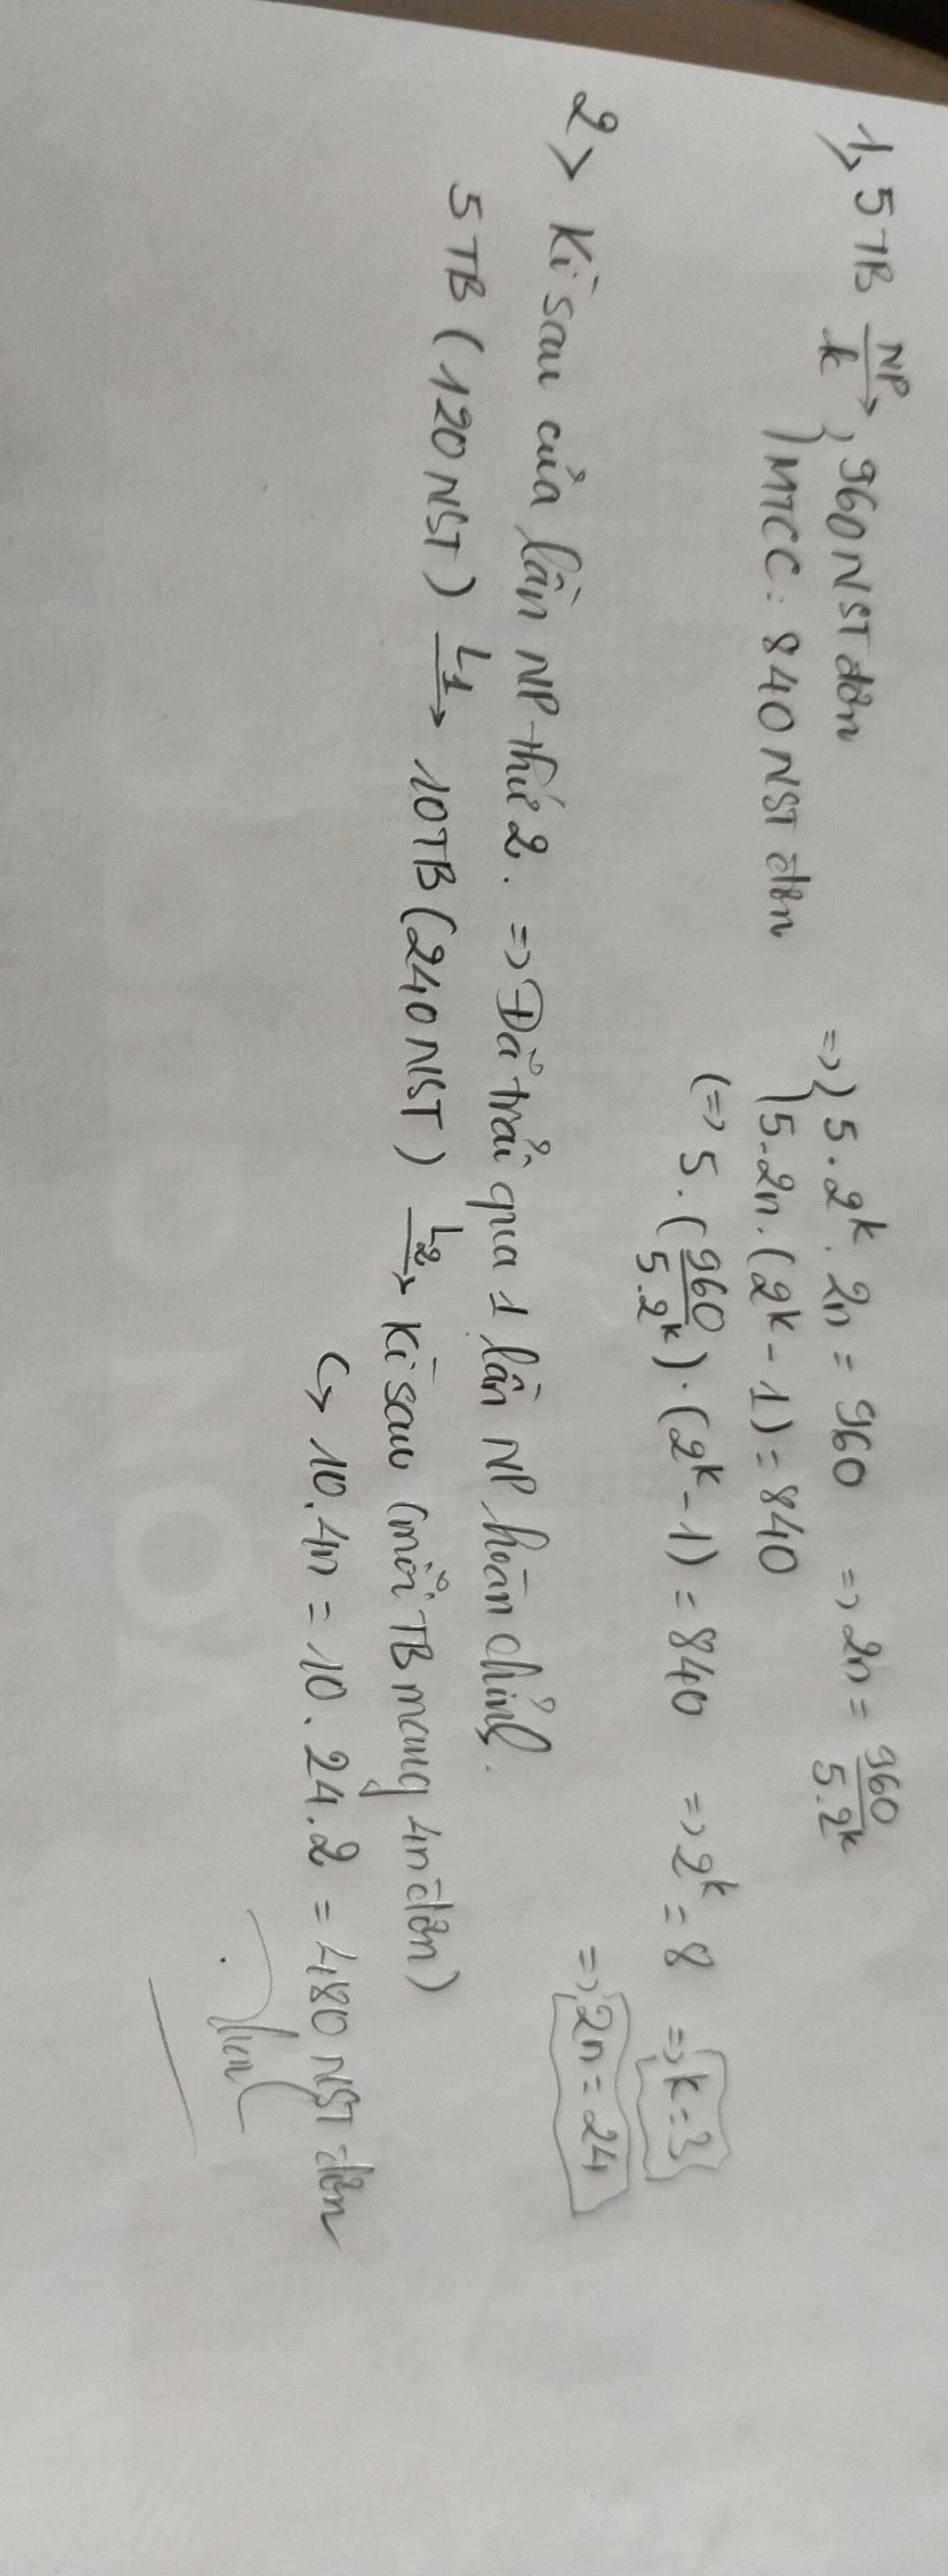 1, 5 TB NP/k → { 960 NST đơn => { 5 . 2^k . 2n = 960 => 2n = 960/(5.2^k)
MTCC : 840 NST đơn 5 . 2n . (2^k - 1) = 840
(=> 5 . (960/(5.2^k)) . (2^k - 1) = 840 => 2^k = 8 => k = 3
=> 2n = 24
2> Kì sau của lần NP thứ 2. => Đã trải qua 1 lần NP hoàn chỉnh.
5 TB (120 NST) L1→ 10TB (240 NST) L2→ Kì sau (mỗi TB mang 4n đơn)
↳ 10.4n = 10 . 24.2 = 480 NST đơn